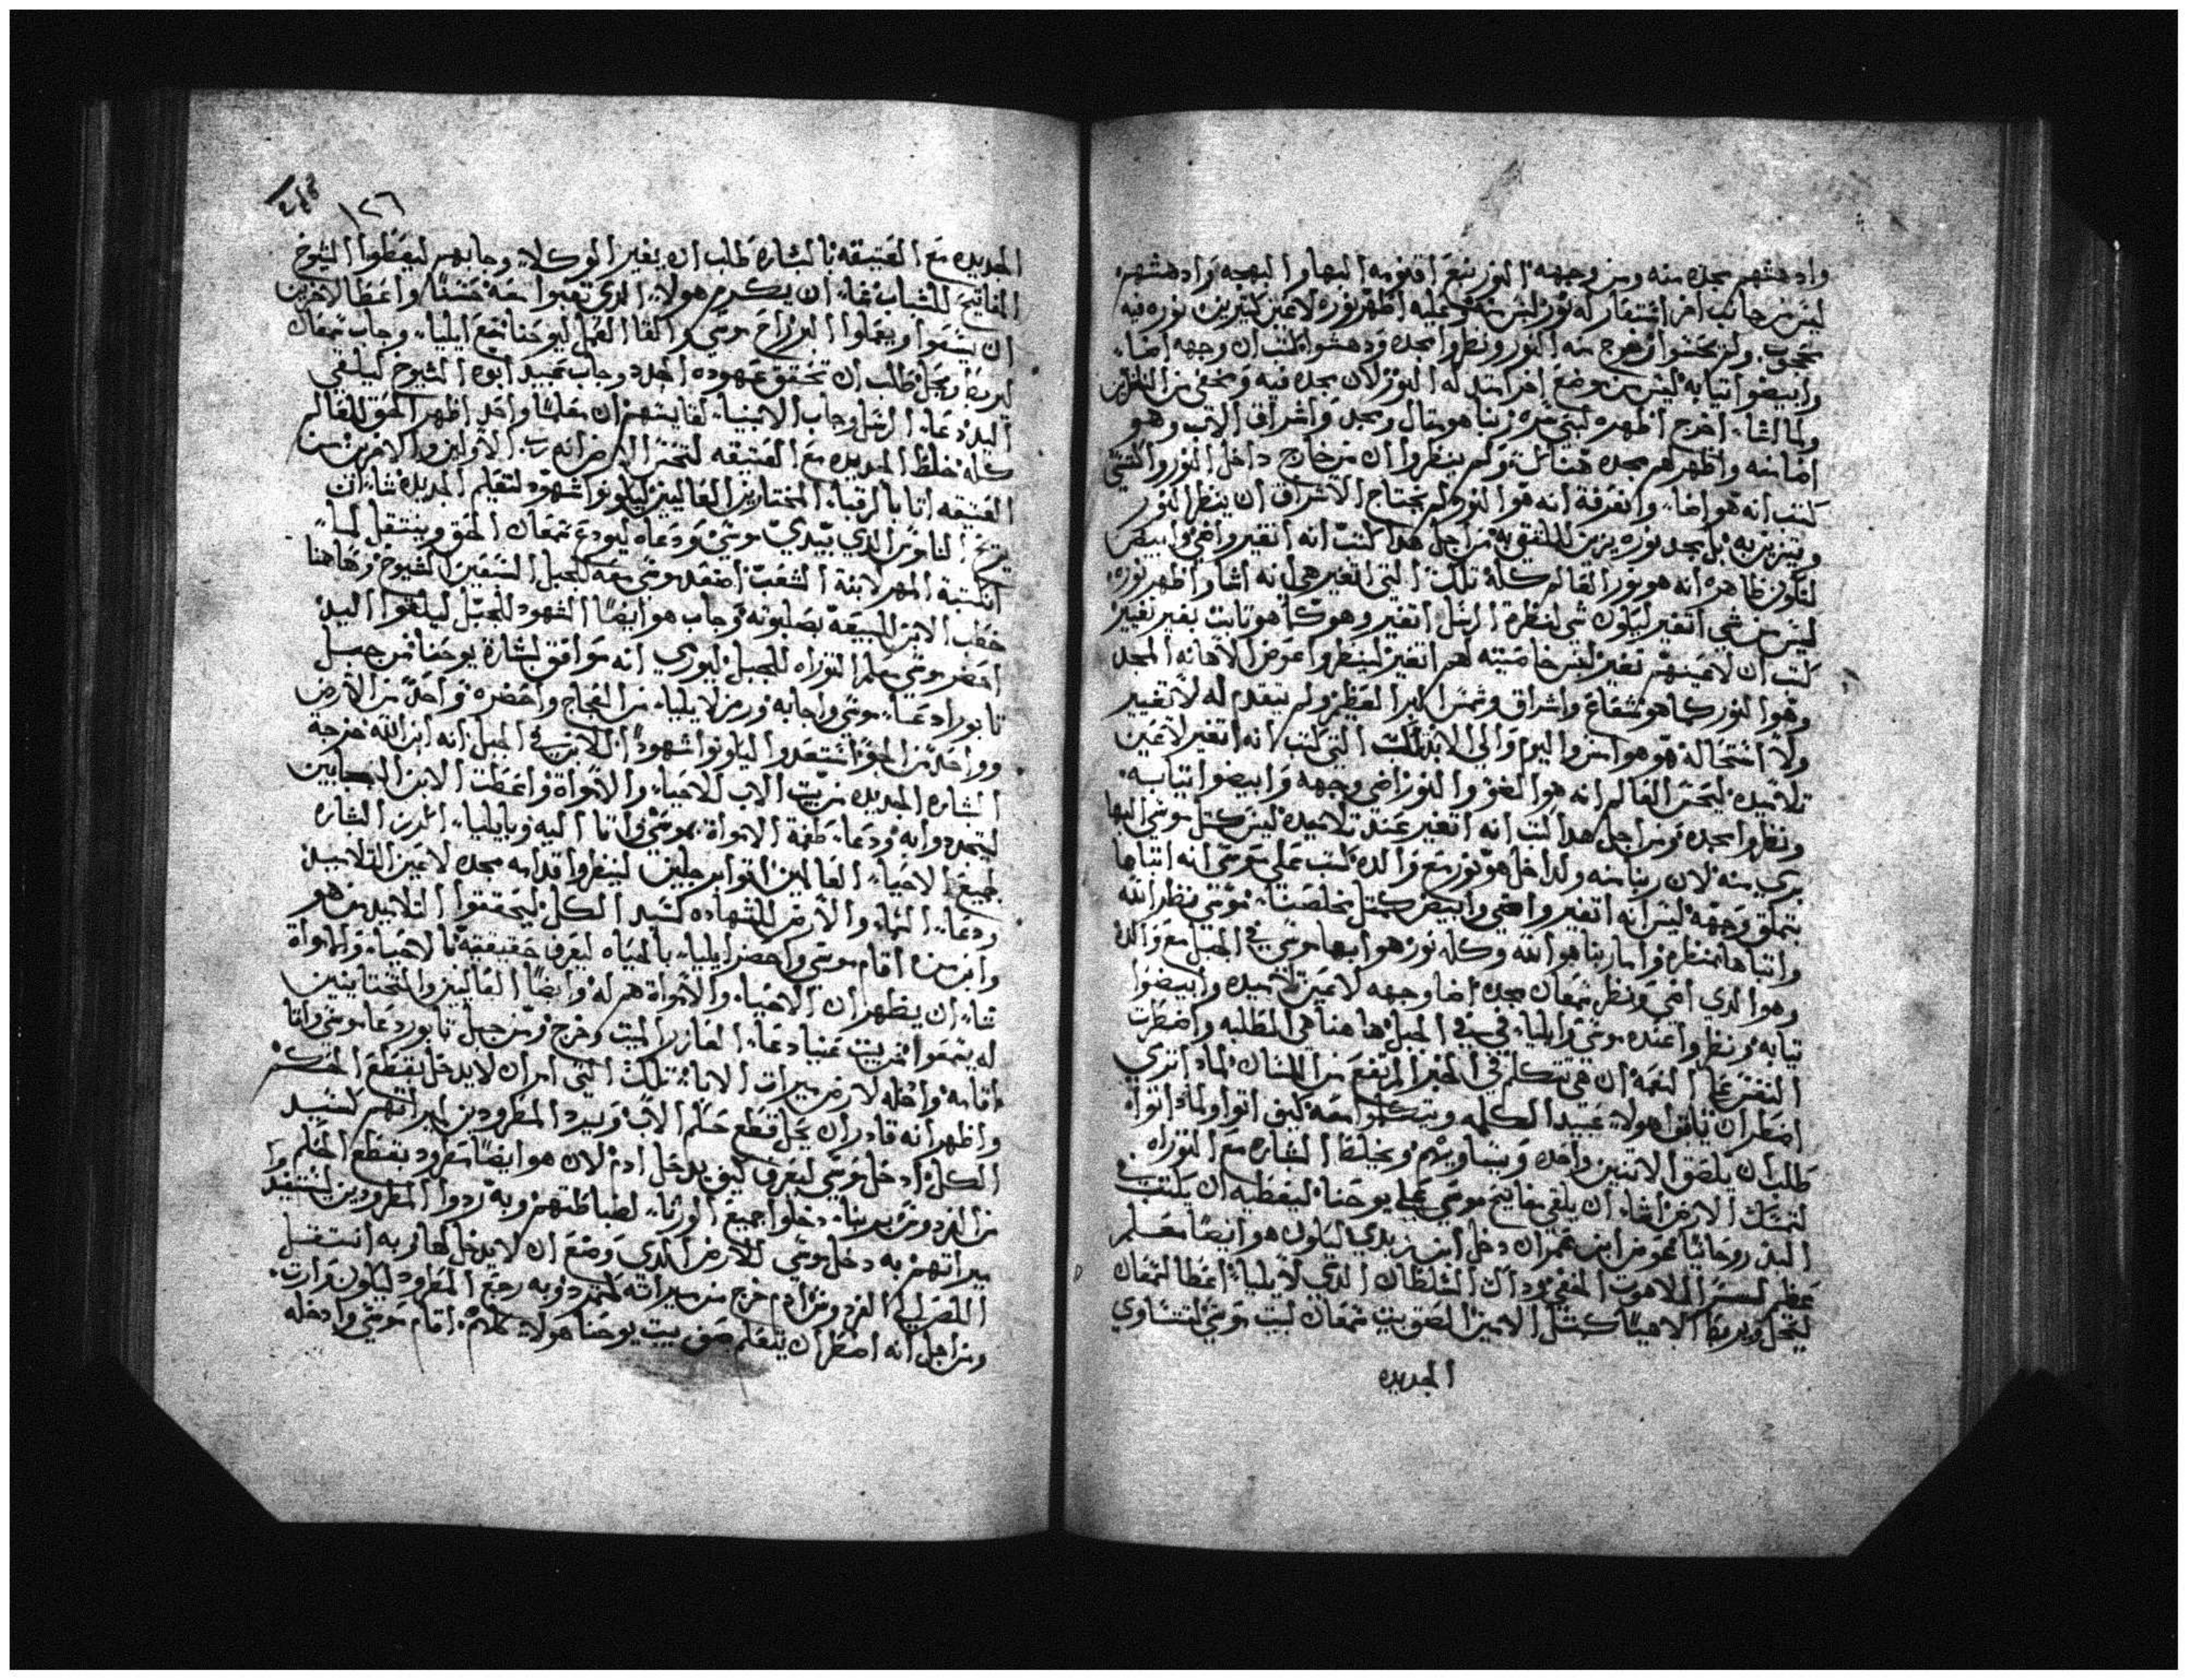 وادهشهم بمجده منه ومن وجهه النور نبع اقنومه البها والبهجه وادهشهم
ليس من جانب اخر استعار له نور ليس منه وعليه اظهر نوره لاعين كتيرين نوره فيه
محجوب ولم يحسوا وخرج منه النور ونظروا مجده ودهشوا كتب ان وجهه اضاء
وابيضوا تيابه ليس من موضع اخر امتد له النور لان مجده فيه ومخفي من النظار
ولما شاء اخرج اظهره لبني سره ربنا هو متال ومجد واشراق الاب وهو
اضا منه واظهر لهم مجده ولم ينظروا ان من خارج داخل النور والتني
كتب انه هو اضاء وانعرفة انه هو النور لم يحتاج الاشراق ان ينظر النور
ويتزين به بل بمجد نوره يزين الملتقي به من اجل هدا كتب انه اتغير واضي وابيض
لتكون ظاهره انه هو نور العالم كله تلك التي اتغير هي انه اشا واظهر نوره
ليس من شي اتغير ليكون شي لنظرة الرسل اتغير وهو كما هو تابت بغير تغيير
كتب ان لاعينهم تغير ليس خاصيته لهم اتغير لينظروا عوض الاهانه المجد
وهو النور كما هو شعاع واشراق وشمس البر العظيم ولم يتقدم له لا تغيير
ولا استحاله هو هو امس واليوم والى الابد تلك التي كتب انه اتغير لاعين
تلاميده ليحس العالم انه هو الضو والنور اضي وجهه وابيضوا تيابه
ونظروا مجده ومن اجل هدا كتب انه اتغير عند تلاميده ليس كمتل موسى البها
برى منه لان ربنا منه ولداخل هو نور مع والده كتب على موسى انه اتباها
بتملق وجهه ليس انه اتغير واضي وابيض كمتل مخلصنا موسى نظر الله
واتباها بمنظره واما ربنا هو الله وكله نور هو ابها موسى في الجبل مع والده
وهو الدي اضي ونظر شمعان مجده اضا وجهه لاعين تلاميده وابيضوا
تيابه ونظروا عنده موسى وايليا في الجبل هاهنا هي المطلبه واضطرت
النفس على النعمه ان هي تتكلم في الخبر المرتفع من اللسان لماد اترى
اضطر ان تاتوا هولاء عبيد الكلمه ويتكلموا معه كيف اتوا ولماد اتواه
طلب ان يلصق الاتنين واحد ويتساويهم ويخلط البشاره مع التوراه
لتمسك الارض شاء ان يلقي مفاتيح موسى على يوحنا ليعطيه ان يكتب في
البدء روحانيا عوض ابن عمران دخل ابن زبدي ليكون هو ايضا معلم
عظيم لسر اللاهوت المخفي وداك السلطان الدي لايليا اعطا لشمعان
ليحل ويربط الاهيا كمتل الامين الصق بيت شمعان لبيت موسى لتتساوي
الجديده
١٢٦
الجديده مع العتيقه بالبشاره طلب ان يغير الوكلاء وجابهم ليعطوا الشيوخ
المفاتيح للشباب شاء ان يكرم هولاء الدي تعبوا معه حسنا واعطا لاخرين
ان يسموا ويعملوا الدراخ موسى والقا العمل ليوحنا مع ايليا وجاب شمعان
ليربط ويحل طلب ان تحقق عهوده الجدد وجاب عبيد ابوه الشيوخ ليلتقي
البدء دعاء الرسل وجاب الانبياء لقايتهم ان معلما واحد اظهر الحق للعالم
كله خلط الجديده مع العتيقه لتحس الارض انه رب الاولين والاخرين من
العتيقه اتا بالرقباء المختارين العاليين ليكونوا شهود لتعليم الجديده شاء ان
يريح الناموس الدي بيدي موسى ودعاه ليودع شمعان الحق وينتقل لما
انكتبة المهر لابنة الشعب اصعد موسى معه للجبل السبعين الشيوخ وهاهنا
خطب الابن للبيعه بصلبوته وجاب هو ايضا الشهود للجبل ليلتقوا البدء
احضر موسى معلم التوراه للجبل ليوري انه موافق لبشارة يوحنا من جبل
تابور ادعاء موسى واجابه ورمز لايليا من الفجاج واحضره واحد من الارض
وواحد من الجو استعدوا ليكونوا شهودا للابن في الجبل انه ابن الله خرجة
البشاره الجديده من بيت الاب للاحياء والامواة واعطت الابن
ليتمجدوا به ودعاء طغمة الامواة بموسى واتا اليه وبايليا اندرن البشاره
لجميع الاحياء العالمين اتوا مرجلين لينظروا قدامه مجده لاعين التلاميد
ودعاء السماء والارض للشهاده كسيد الكل ليحققوا التلاميد من هو
وابن من اقام موسى واحضر ايليا بالحياه ليعرف حقيقيه بالاحياء والامواة
شاء ان يظهر ان الاحياء والامواة هم له وايضا العاليين والتحتانيين
له يسمعوا من بيت عنيا دعاء العازر الميت وخرج ومن جبل تابور دعا موسى واتا
اقامه وادخله لارض ميرات الاباء تلك التي امر ان لا يدخل بقطع الحكم
واظهر انه قادر ان يحل قطع حكم الاب ويرد المطرودين لميراتهم كسيد
الكل ادخل موسى ليعرف كيف يدخل ادم لان هو ايضا مطرود بقطع الحكم
من الفردوس بربنا دخلوا جميع الورتاء لضباطتهم وبه ردوا المطرودين لتستعيد
ميراتهم به دخل موسى للارض الدي وضع ان لا يدخل لها وبه انتقل
اللص الى الفردوس ادم خرج من ميراته لتمرد وبه رجع المطرود ليكون وارت
ومن اجل انه اضطر ان يتعلم صف بيت يوحنا هولاء كلهم اقام موسى وادخله